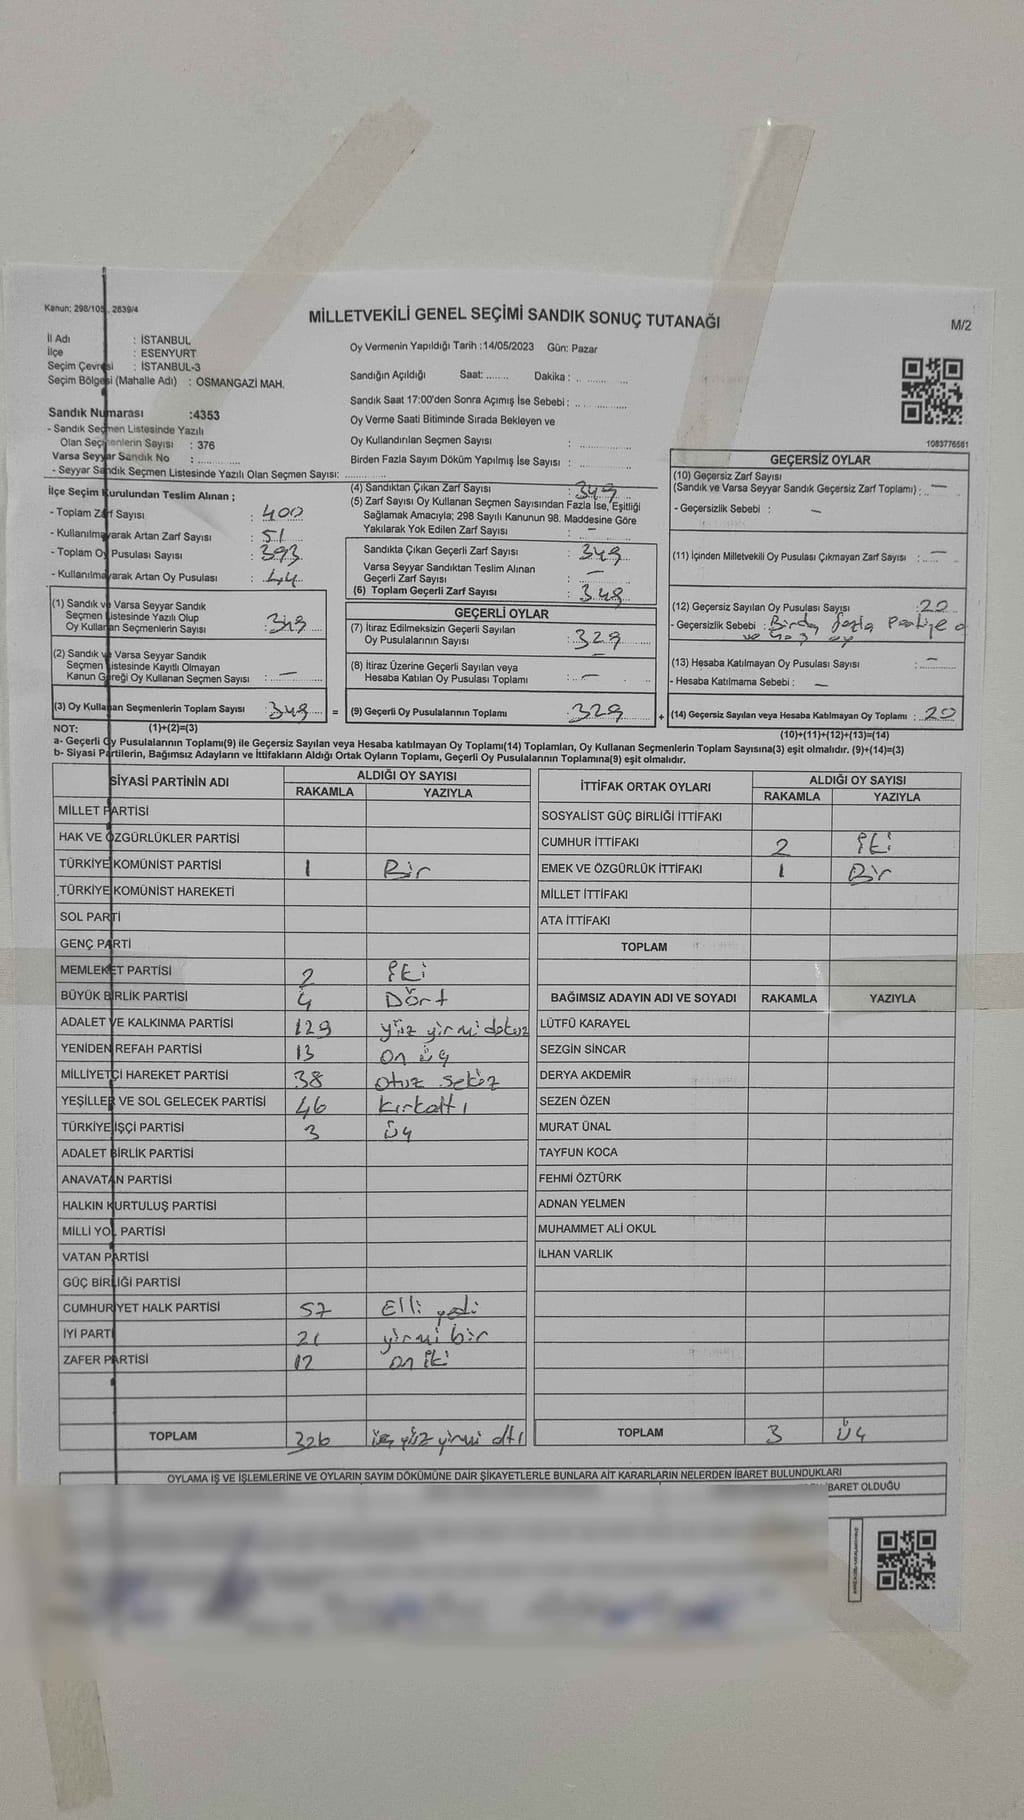 Kanun: 298/105, 2839/4
MİLLETVEKİLİ GENEL SEÇİMİ SANDIK SONUÇ TUTANAĞI
M/2
İl Adı : İSTANBUL
İlçe : ESENYURT
Seçim Çevresi : İSTANBUL-3
Seçim Bölgesi (Mahalle Adı) : OSMANGAZİ MAH.
Sandık Numarası :4353
- Sandık Seçmen Listesinde Yazılı
Olan Seçmenlerin Sayısı : 376
Varsa Seyyar Sandık No :
- Seyyar Sandık Seçmen Listesinde Yazılı Olan Seçmen Sayısı:
Oy Vermenin Yapıldığı Tarih :14/05/2023 Gün: Pazar
Sandığın Açıldığı Saat: Dakika :
Sandık Saat 17:00'den Sonra Açımış İse Sebebi :
Oy Verme Saati Bitiminde Sırada Bekleyen ve
Oy Kullandırılan Seçmen Sayısı :
Birden Fazla Sayım Döküm Yapılmış İse Sayısı :
1083776561
İlçe Seçim Kurulundan Teslim Alınan ;
- Toplam Zarf Sayısı : 400
- Kullanılmayarak Artan Zarf Sayısı : 51
- Toplam Oy Pusulası Sayısı : 393
- Kullanılmayarak Artan Oy Pusulası : 44
(1) Sandık ve Varsa Seyyar Sandık
Seçmen Listesinde Yazılı Olup
Oy Kullanan Seçmenlerin Sayısı : 349
(2) Sandık ve Varsa Seyyar Sandık
Seçmen Listesinde Kayıtlı Olmayan
Kanun Gereği Oy Kullanan Seçmen Sayısı : —
(3) Oy Kullanan Seçmenlerin Toplam Sayısı : 349 =
(4) Sandıktan Çıkan Zarf Sayısı : 349
(5) Zarf Sayısı Oy Kullanan Seçmen Sayısından Fazla İse, Eşitliği
Sağlamak Amacıyla; 298 Sayılı Kanunun 98. Maddesine Göre
Yakılarak Yok Edilen Zarf Sayısı : —
Sandıkta Çıkan Geçerli Zarf Sayısı : 349
Varsa Seyyar Sandıktan Teslim Alınan
Geçerli Zarf Sayısı : —
(6) Toplam Geçerli Zarf Sayısı : 349
GEÇERLİ OYLAR
(7) İtiraz Edilmeksizin Geçerli Sayılan
Oy Pusulalarının Sayısı : 329
(8) İtiraz Üzerine Geçerli Sayılan veya
Hesaba Katılan Oy Pusulası Toplamı : —
(9) Geçerli Oy Pusulalarının Toplamı : 329 +
GEÇERSİZ OYLAR
(10) Geçersiz Zarf Sayısı
(Sandık ve Varsa Seyyar Sandık Geçersiz Zarf Toplamı) : —
- Geçersizlik Sebebi : —
(11) İçinden Milletvekili Oy Pusulası Çıkmayan Zarf Sayısı : —
(12) Geçersiz Sayılan Oy Pusulası Sayısı : 20
- Geçersizlik Sebebi : Birden fazla Partiye
(13) Hesaba Katılmayan Oy Pusulası Sayısı : —
- Hesaba Katılmama Sebebi : —
(14) Geçersiz Sayılan veya Hesaba Katılmayan Oy Toplamı : 20
NOT: (1)+(2)=(3)
(10)+(11)+(12)+(13)=(14)
a- Geçerli Oy Pusulalarının Toplamı(9) ile Geçersiz Sayılan veya Hesaba katılmayan Oy Toplamı(14) Toplamları, Oy Kullanan Seçmenlerin Toplam Sayısına(3) eşit olmalıdır. (9)+(14)=(3)
b- Siyasi Partilerin, Bağımsız Adayların ve İttifakların Aldığı Ortak Oyların Toplamı, Geçerli Oy Pusulalarının Toplamına(9) eşit olmalıdır.
SİYASİ PARTİNİN ADI ALDIĞI OY SAYISI
RAKAMLA YAZIYLA
MİLLET PARTİSİ
HAK VE ÖZGÜRLÜKLER PARTİSİ
TÜRKİYE KOMÜNİST PARTİSİ 1 Bir
TÜRKİYE KOMÜNİST HAREKETİ
SOL PARTİ
GENÇ PARTİ
MEMLEKET PARTİSİ 2 İki
BÜYÜK BİRLİK PARTİSİ 4 Dört
ADALET VE KALKINMA PARTİSİ 129 yüz yirmi dokuz
YENİDEN REFAH PARTİSİ 13 on üç
MİLLİYETÇİ HAREKET PARTİSİ 38 otuz sekiz
YEŞİLLER VE SOL GELECEK PARTİSİ 46 kırkaltı
TÜRKİYE İŞÇİ PARTİSİ 3 üç
ADALET BİRLİK PARTİSİ
ANAVATAN PARTİSİ
HALKIN KURTULUŞ PARTİSİ
MİLLİ YOL PARTİSİ
VATAN PARTİSİ
GÜÇ BİRLİĞİ PARTİSİ
CUMHURİYET HALK PARTİSİ 57 Elli yedi
İYİ PARTİ 21 yirmi bir
ZAFER PARTİSİ 12 on iki
TOPLAM 326 üç yüz yirmi altı
İTTİFAK ORTAK OYLARI ALDIĞI OY SAYISI
RAKAMLA YAZIYLA
SOSYALİST GÜÇ BİRLİĞİ İTTİFAKI
CUMHUR İTTİFAKI 2 İki
EMEK VE ÖZGÜRLÜK İTTİFAKI 1 Bir
MİLLET İTTİFAKI
ATA İTTİFAKI
TOPLAM
BAĞIMSIZ ADAYIN ADI VE SOYADI RAKAMLA YAZIYLA
LÜTFÜ KARAYEL
SEZGİN SİNCAR
DERYA AKDEMİR
SEZEN ÖZEN
MURAT ÜNAL
TAYFUN KOCA
FEHMİ ÖZTÜRK
ADNAN YELMEN
MUHAMMET ALİ OKUL
İLHAN VARLIK
TOPLAM 3 üç
OYLAMA İŞ VE İŞLEMLERİNE VE OYLARIN SAYIM DÖKÜMÜNE DAİR ŞİKAYETLERLE BUNLARA AİT KARARLARIN NELERDEN İBARET BULUNDUKLARI
İBARET OLDUĞU